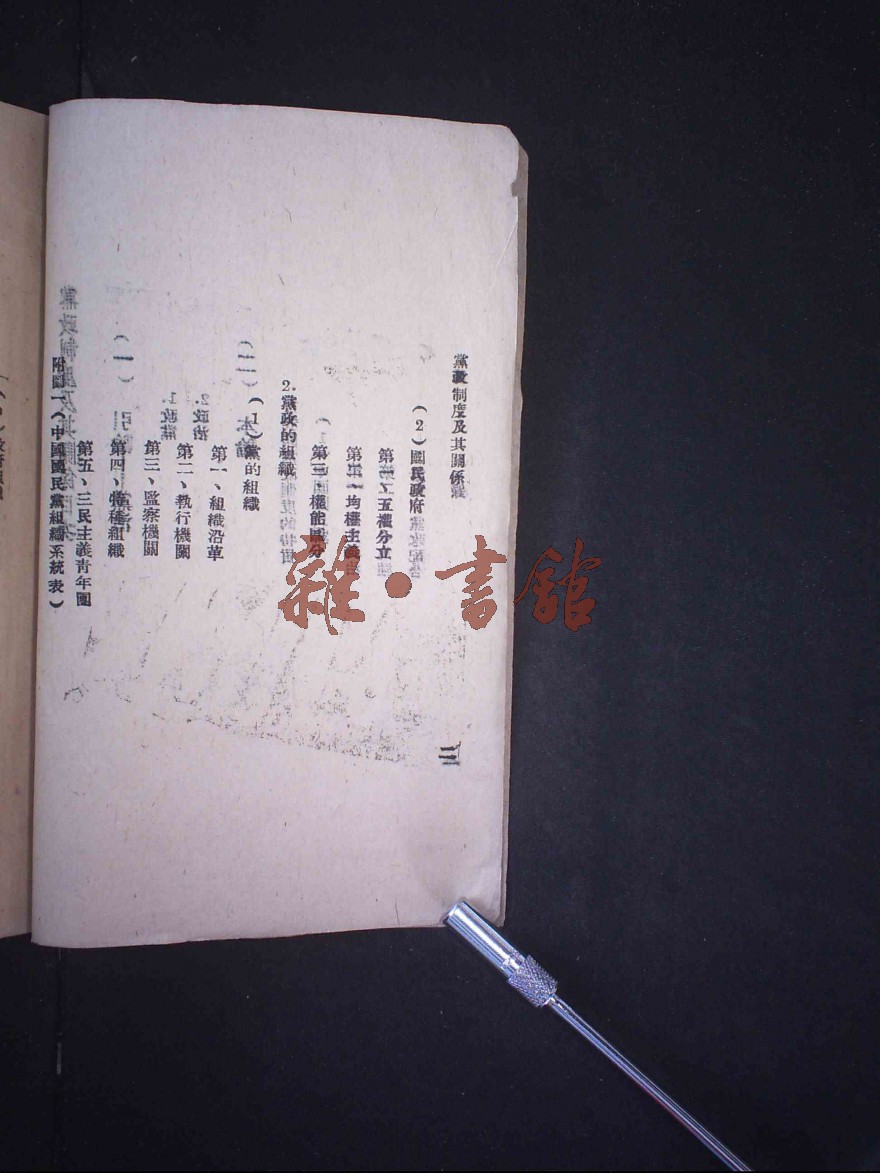 黨政制度及其關係
(2)國民政府
第一、五權分立
第二、均權主義
第三、權能區分
2.黨政的組織
(1)黨的組織
第一、組織沿革
第二、執行機關
第三、監察機關
第四、特種組織
第五、三民主義青年團
附圖一(中國國民黨組織系統表)
二
雜·書館